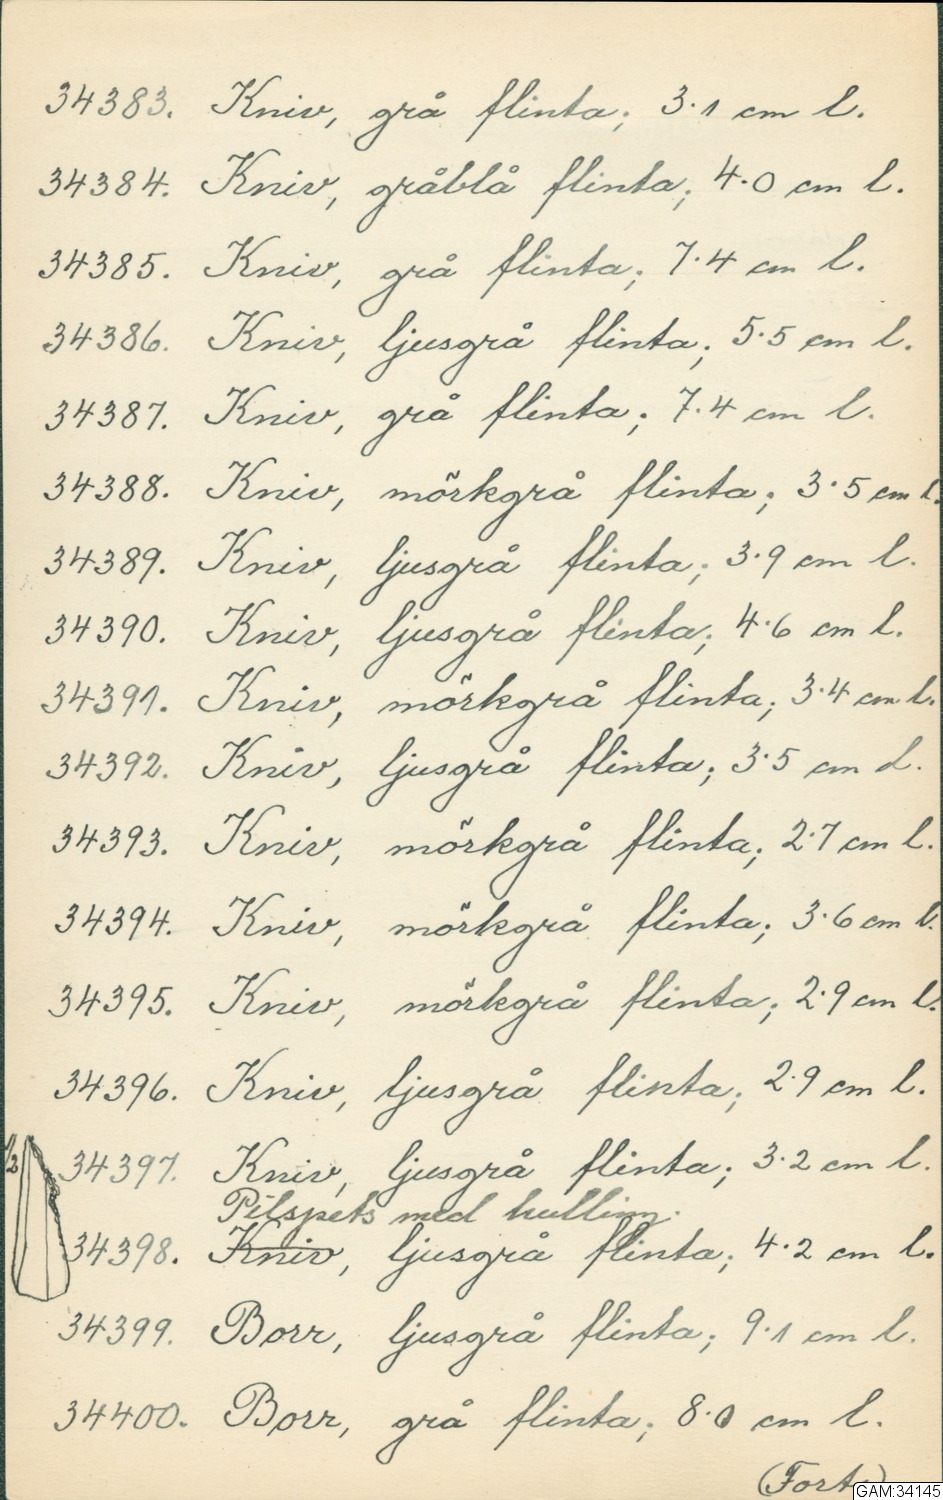 34383. Kniv, grå flinta; 3.1 cm l.
34384. Kniv, gråblå flinta; 4.0 cm l.
34385. Kniv, grå flinta; 7.4 cm l.
34386. Kniv, ljusgrå flinta; 5.5 cm l.
34387. Kniv, grå flinta; 7.4 cm l.
34388. Kniv, mörkgrå flinta; 3.5 cm l.
34389. Kniv, ljusgrå flinta; 3.9 cm l.
34390. Kniv, ljusgrå flinta; 4.6 cm l.
34391. Kniv, mörkgrå flinta; 3.4 cm l.
34392. Kniv, ljusgrå flinta; 3.5 cm l.
34393. Kniv, mörkgrå flinta; 2.7 cm l.
34394. Kniv, mörkgrå flinta; 3.6 cm l.
34395. Kniv, mörkgrå flinta; 2.9 cm l.
34396. Kniv, ljusgrå flinta; 2.9 cm l.
1/2 34397. Kniv, ljusgrå flinta; 3.2 cm l.
Pilspets med hulling.
34398. Kniv, ljusgrå flinta; 4.2 cm l.
34399. Borr, ljusgrå flinta; 9.1 cm l.
34400. Borr, grå flinta; 8.0 cm l.
(Forts)
GAM:34145